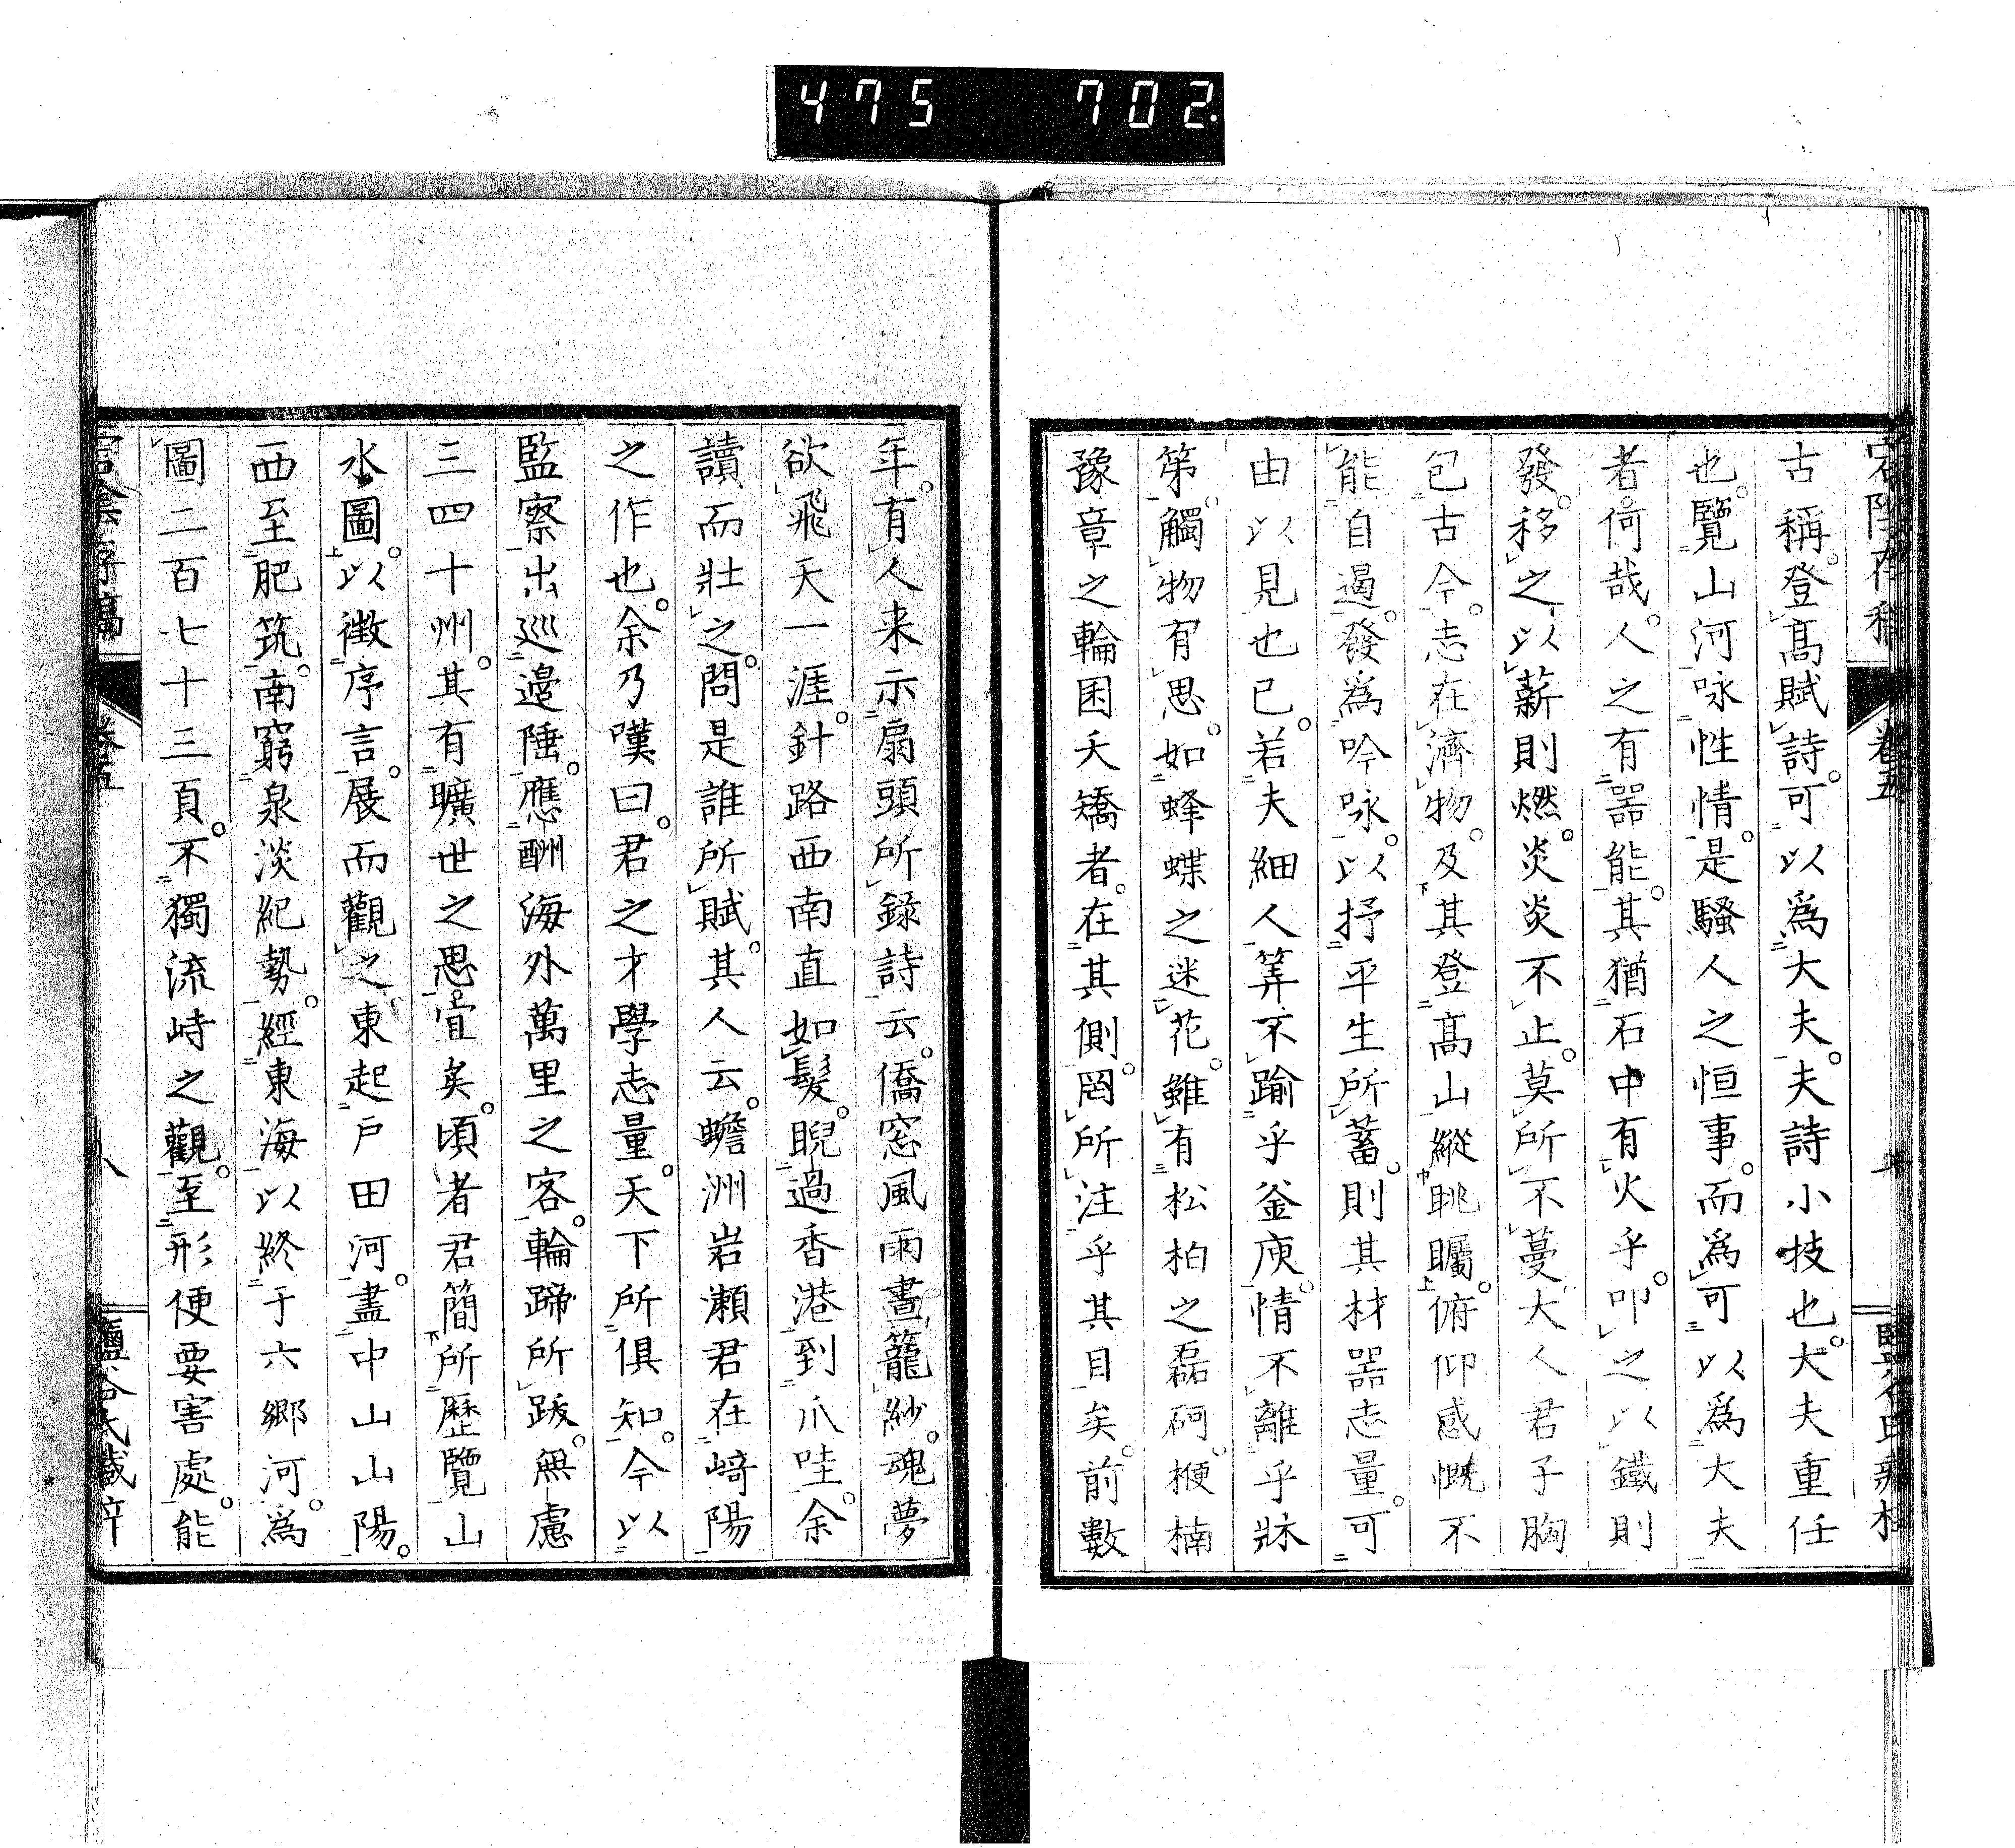 475 702.
古稱。登高賦詩。可以爲大夫。夫詩小技也。大夫重任
也。覽山河咏性情。是騷人之恒事。而爲可以爲大夫
者。何哉。人之有器能。其猶石中有火乎。叩之以鐵則
發。移之以薪則燃。炎炎不止。莫所不蔓。大人君子胸
包古今。志在濟物。及其登高山縱眺矚。俯仰感慨不
能自遏。發爲吟咏。以抒平生所蓄。則其材器志量。可
由以見也已。若夫細人筭不踰乎釜庾。情不離乎牀
第。觸物有思。如蜂蝶之迷花。雖有松柏之磊砢。楩楠
豫章之輪囷夭矯者。在其側。罔所注乎其目矣。前數
年。有人来示扇頭所錄詩云。僑窓風雨晝籠紗。魂夢
欲飛天一涯。針路西南直如髮。睨過香港到爪哇。余
讀而壯之。問是誰所賦。其人云。蟾洲岩瀬君在﨑陽
之作也。余乃嘆曰。君之才學志量。天下所俱知。今以
監察出巡邊陲。應酬海外萬里之客。輪蹄所跋。無慮
三四十州。其有曠世之思。宜矣。頃者君簡所歷覽山
水圖。以徵序言。展而觀之。東起戸田河。盡中山山陽。
西至肥筑。南窮泉淡紀勢。經東海以終于六郷河。爲
圖二百七十三頁。不獨流峙之觀。至形便要害處。能
卷五
八